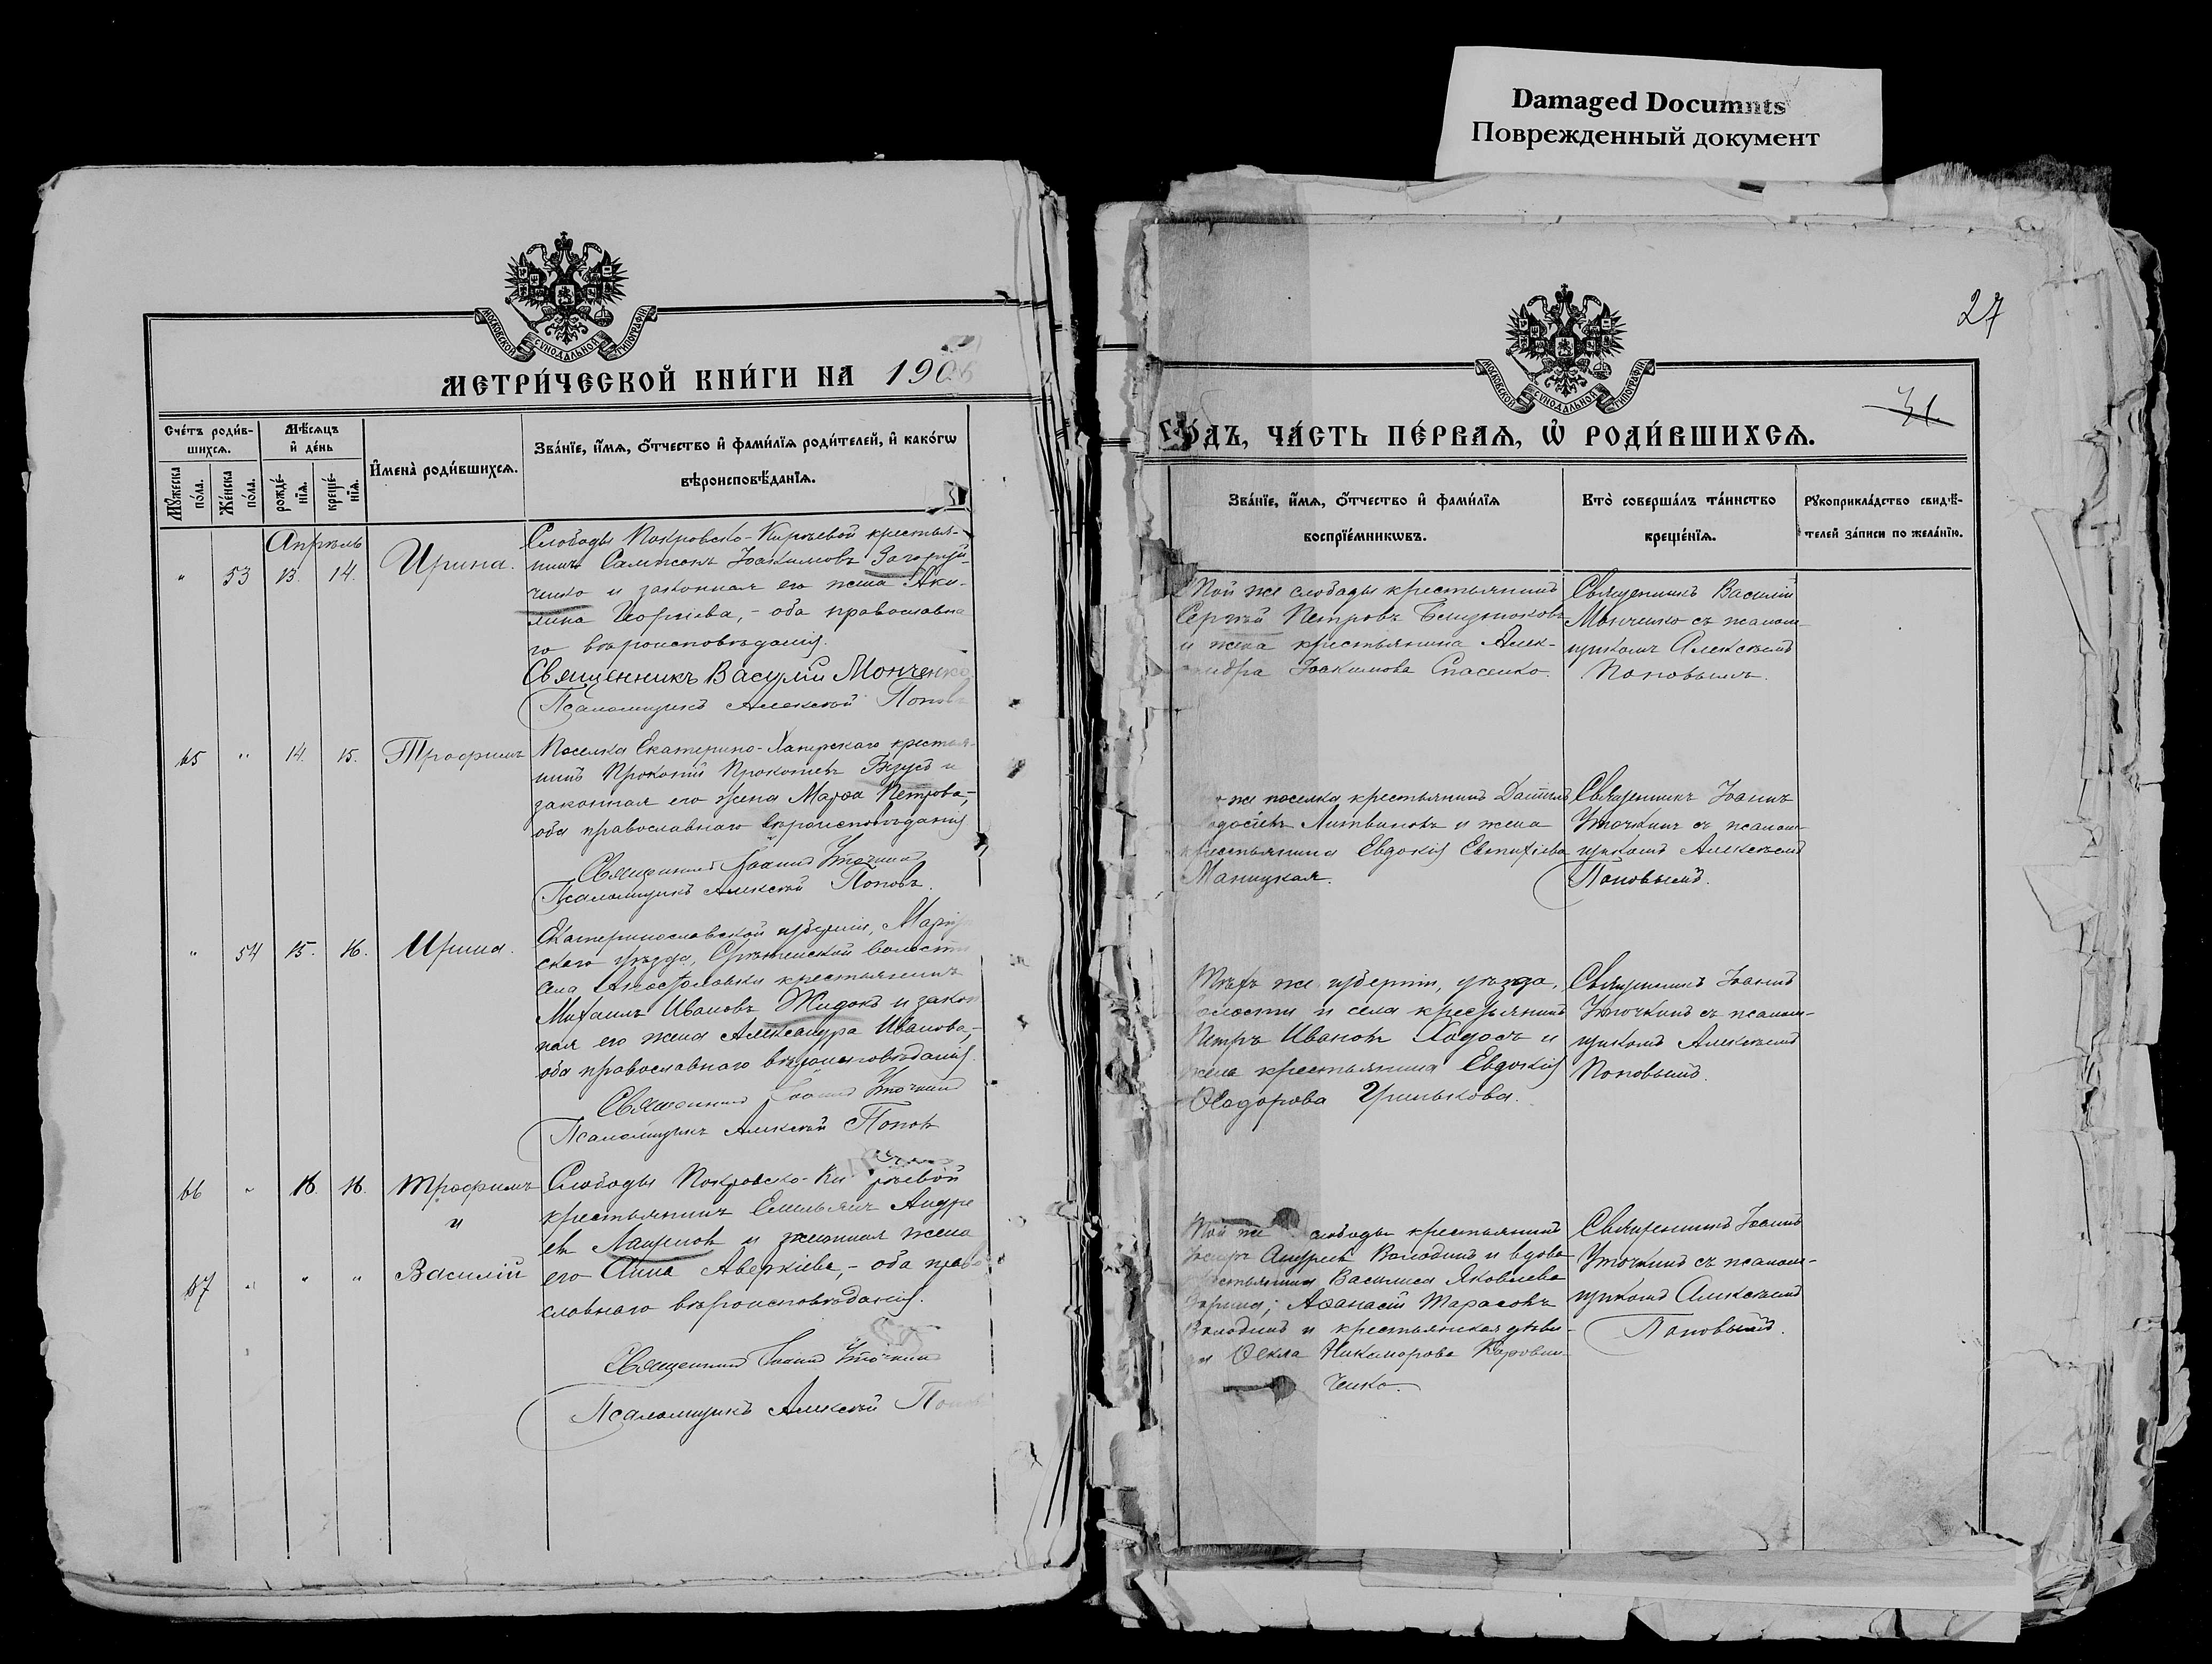 Damaged Documnts
Поврежденный документ
МОСКОВСКОЙ СѴНОДАЛЬНОЙ ТИПОГРАФІИ
МЕТРИ́ЧЕСКОЙ КНИ́ГИ НА 190
Сче́тъ роди́в-
шихсѧ.
Мꙋ́жеска по́ла.
Же́нска по́ла.
Мѣ́сѧцъ и҆ де́нь
рожде́-
нїѧ.
креще́-
нїѧ.
И҆мена̀ роди́вшихсѧ.
Зва́нїе, и҆́мѧ, ѻ҆́тчество и҆ фами́лїѧ роди́телей, и҆ како́гѡ
вѣроисповѣ́данїѧ.
Апрѣль
" 53 13. 14. Ирина.
Слободы Покровско-Кирѣевой крестья-
нинъ Сампсонъ Іоакимовъ Загоруй-
ченко и законная его жена Аки-
лина Георгіева, - оба православна
го вѣроисповѣданія.
Священникъ Василій Монченко
Псаломщикъ Алексѣй Попов
65 " 14. 15. Трофимъ
Поселка Екатерино-Хапрскаго крестья-
нинъ Прокопій Прокопіевъ Бзусъ и
законная его жена Марѳа Петрова,-
оба православнаго вѣроисповѣданія
Священникъ Іоаннъ Уточкинъ
Псаломщикъ Алексѣй Поповъ.
" 54 15. 16. Ирина.
Екатеринославской губерніи, Маріу
скаго уѣзда, Срѣтенской волости
села Апостоловки крестьянинъ
Михаилъ Ивановъ Жидокъ и закон
ная его жена Александра Иванова,-
оба православнаго вѣроисповѣданія.
Священникъ Іоаннъ Уточкинъ
Псаломщикъ Алексѣй Поповъ
66 " 16. 16. Трофимъ
и
67 " " " Василій
Слободы Покровско-Кирѣевой
крестьянинъ Емельянъ Андре
евъ Лащеновъ и законная жена
его Анна Аверкіева, - оба право
славнаго вѣроисповѣданія.
Священникъ Іоаннъ Уточкинъ
Псаломщикъ Алексѣй Попов
27
31
МОСКОВСКОЙ СѴНОДАЛЬНОЙ ТИПОГРАФІИ
ГО́ДЪ, ЧА́СТЬ ПЕ́РВАѦ, Ѡ҆ РОДИ́ВШИХСѦ.
Зва́нїе, и҆́мѧ, ѻ҆́тчество и҆ фами́лїѧ
воспрїе́мникѡвъ.
Кто̀ соверша́лъ та́инство
креще́нїѧ.
Рꙋкоприкла́дство свидѣ́-
телей за́писи по жела́нїю.
Той же слободы крестьянинъ
Сергѣй Петровъ
и жена крестьянина Алек-
сандра Іоакимова Спасенко.
Священникъ Василій
Монченко съ псалом-
щикомъ Алексѣемъ
Поповымъ.
же поселка крестьянинъ Даніилъ
Литвиновъ и жена
крестьянина Евдокія Евтихіева
Маницкая.
Священникъ Іоаннъ
Уточкинъ съ псалом-
щикомъ Алексѣемъ
Поповымъ.
Тѣхъ же губерніи, уѣзда,
волости и села крестьянинъ
Петръ Ивановъ Ходосъ и
жена крестьянина Евдокія
Ѳеодорова Гринькова.
Священникъ Іоаннъ
Уточкинъ съ псалом-
щикомъ Алексѣемъ
Поповымъ.
Той же слободы крестьянинъ
Андреевъ Володинъ и вдова
крестьянина Василиса Яковлева
Зорина; Аѳанасій Тарасовъ
Володинъ и крестьянская дѣви-
ца Ѳекла Никанорова Коровни-
ченко.
Священникъ Іоаннъ
Уточкинъ съ псалом-
щикомъ Алексѣемъ
Поповымъ.